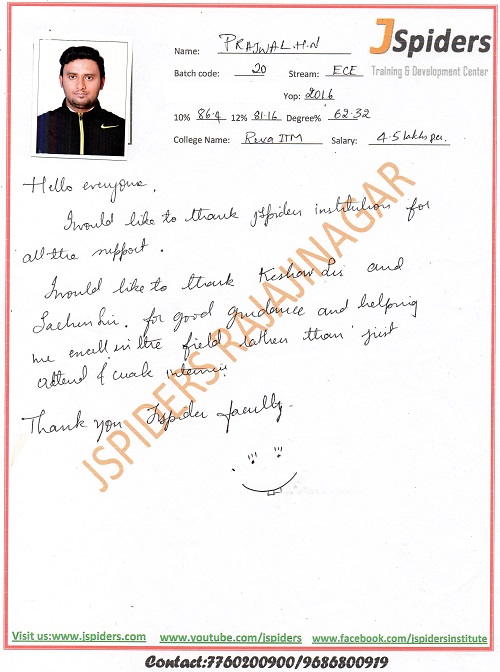 JSpiders
Training & Development Center
Name: PRAJWAL.H.N
Batch code: 20 Stream: ECE
Yop: 2016
10% 86.4 12% 81.16 Degree% 62.32
College Name: Reva ITM Salary: 4.5 lakhs per.
Hello everyone,
I would like to thank jspiders institution for
all the support.
I would like to thank Keshav Sir and
Sachin Sir. for good guidance and helping
me excell in the field rather than just
attend & crack interview.
Thank you Jspider faculty.
JSPIDERS RAJAJINAGAR
Visit us:www.jspiders.com www.youtube.com/jspiders www.facebook.com/jspidersinstitute
Contact:7760200900/9686800919